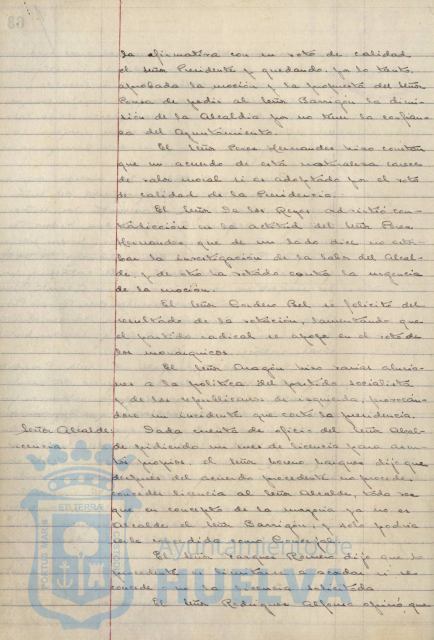 la afirmativa con su voto de calidad
el Señor Presidente y quedando, por lo tanto,
aprobada la moción y la propuesta del Señor
Ponce de pedir al Señor Barrigón la dimi-
sión de la Alcaldía por no tener la confian-
za del Ayuntamiento.
El Señor Pérez Hernandez hizo constar
que un acuerdo de esta naturaleza carece
de valor moral si es adoptado por el voto
de calidad de la Presidencia.
El Señor de los Reyes advirtió con-
tradicción en la actitud del Señor Pérez
Hernandez que de un lado dice no
la investigación de la labor del Alcal-
de y de otro ha votado contra la urgencia
de la moción.
El Señor Cordero Bel se felicitó del
resultado de la votación, lamentando que
el partido radical se apoye en el voto de
los monárquicos.
El Señor Aragón hizo varias alusio-
nes a la política del partido socialista
y de los republicanos de izquierda, provocán-
dose un incidente que cortó la presidencia.
Señor Alcalde: Dada cuenta de oficio del Señor Alcal-
licencia de pidiendo un mes de licencia para asun-
tos propios, el Señor dijo que
después del acuerdo precedente no procede
conceder licencia al Señor Alcalde, toda vez
que en concepto de la mayoría ya no es
Alcalde el Señor Barrigón, y solo podría
serle concedida como Concejal.
El Señor Vazquez dijo que lo
procedente es limitarse a acordar si se
concede o no la licencia solicitada
El Señor Rodriguez Alfonso opinó que
PORTUS MARIS ET TERRAE CUSTODIA
Ayuntamiento de
HUELVA